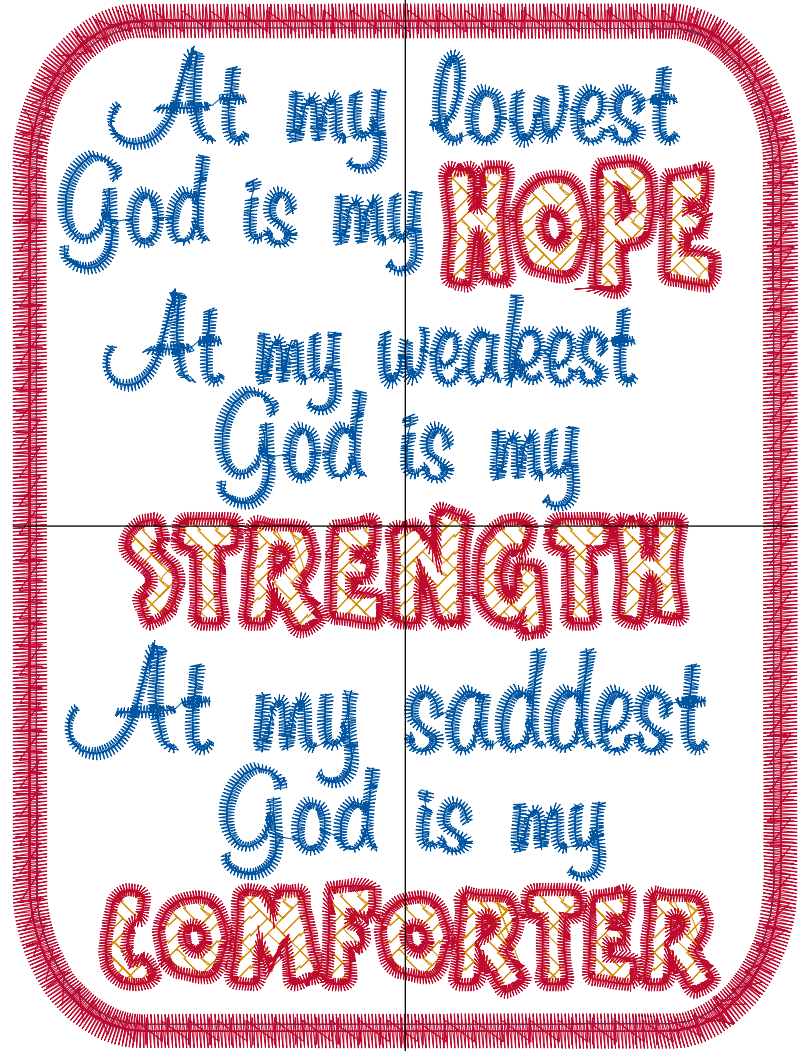 At my lowest
God is my HOPE
At my weakest
God is my
STRENGTH
At my saddest
God is my
COMFORTER